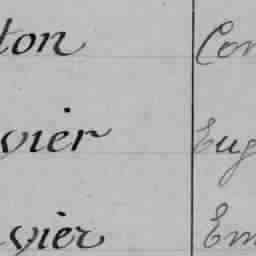 ton Con
vier Eug
vier Em